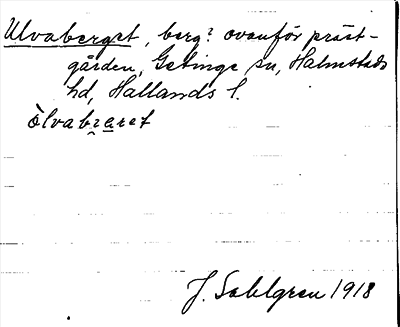 Ulvaberget, berg? ovanför präst-
gården, Getinge sn, Halmstads
hd, Hallands l.
ölvabræret
J. Sahlgren 1918